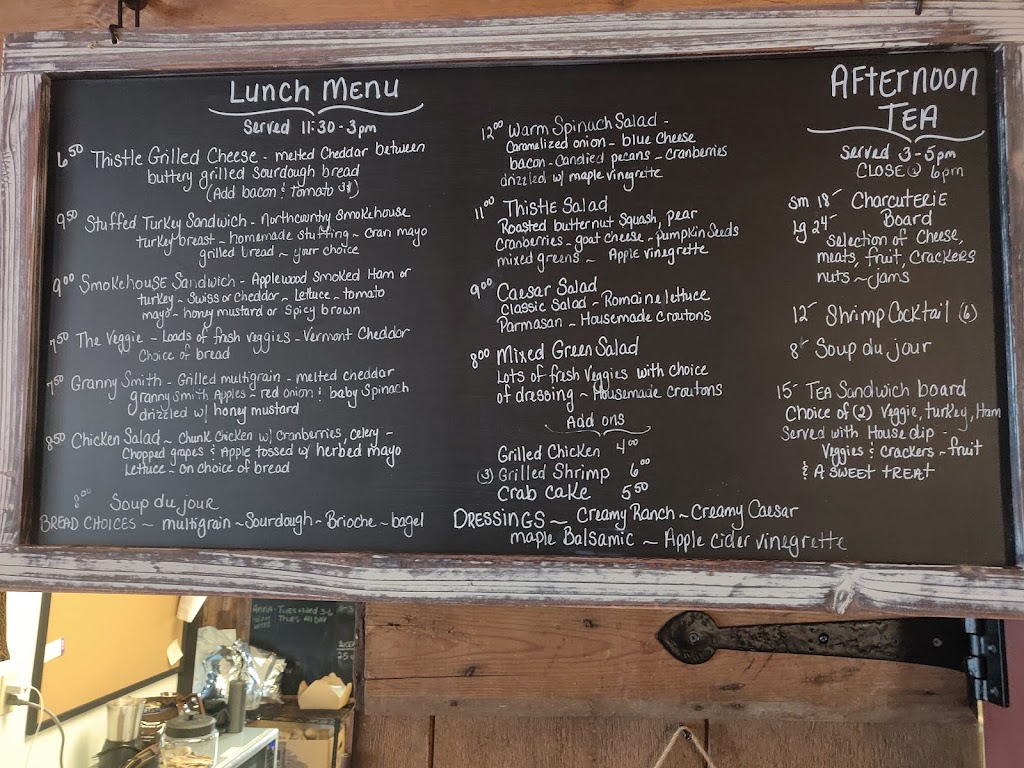 Lunch Menu
Served 11:30 - 3pm
6.50 Thistle Grilled Cheese - melted Cheddar between
buttery grilled Sourdough bread
(Add bacon & tomato 3$)
9.50 Stuffed Turkey Sandwich - Northcountry Smokehouse
turkey breast ~ homemade stuffing ~ cran mayo
grilled bread ~ your choice
9.00 Smokehouse Sandwich - Applewood Smoked Ham or
turkey - Swiss or Cheddar ~ Lettuce - tomato
mayo - honey mustard or Spicy brown
7.50 The Veggie - Loads of fresh veggies - Vermont Cheddar
Choice of bread
7.50 Granny Smith - Grilled multigrain - melted cheddar
granny Smith Apples - red onion & baby Spinach
drizzled w/ honey mustard
8.50 Chicken Salad ~ Chunk Chicken w/ Cranberries, celery -
Chopped grapes & Apple tossed w/ herbed mayo
Lettuce - on choice of bread
8.00 Soup du jour
BREAD CHOICES ~ multigrain ~ Sourdough - Brioche ~ bagel
12.00 Warm Spinach Salad -
Caramelized onion - blue Cheese
bacon - candied pecans - Cranberries
drizzled w/ maple vinegrette
11.00 Thistle Salad
Roasted butternut Squash, pear
Cranberries - goat cheese - pumpkin Seeds
mixed greens ~ Apple vinegrette
9.00 Caesar Salad
Classic Salad - Romaine lettuce
Parmasan ~ Housemade Croutons
8.00 Mixed Green Salad
Lots of fresh Veggies with choice
of dressing ~ Housemade Croutons
Add ons
Grilled Chicken 4.00
(3) Grilled Shrimp 6.00
Crab Cake 5.50
DRESSINGS ~ Creamy Ranch ~ Creamy Caesar
maple Balsamic ~ Apple cider vinegrette
AFTERNOON
TEA
Served 3-5pm
CLOSE @ 6pm
Sm 18- Charcuterie
Lg 24- Board
Selection of Cheese,
meats, fruit, Crackers
nuts ~ jams
12- Shrimp Cocktail (6)
8- Soup du jour
15- TEA Sandwich board
Choice of (2) Veggie, turkey, Ham
Served with House dip -
Veggies & crackers - fruit
& A SWEET TREAT